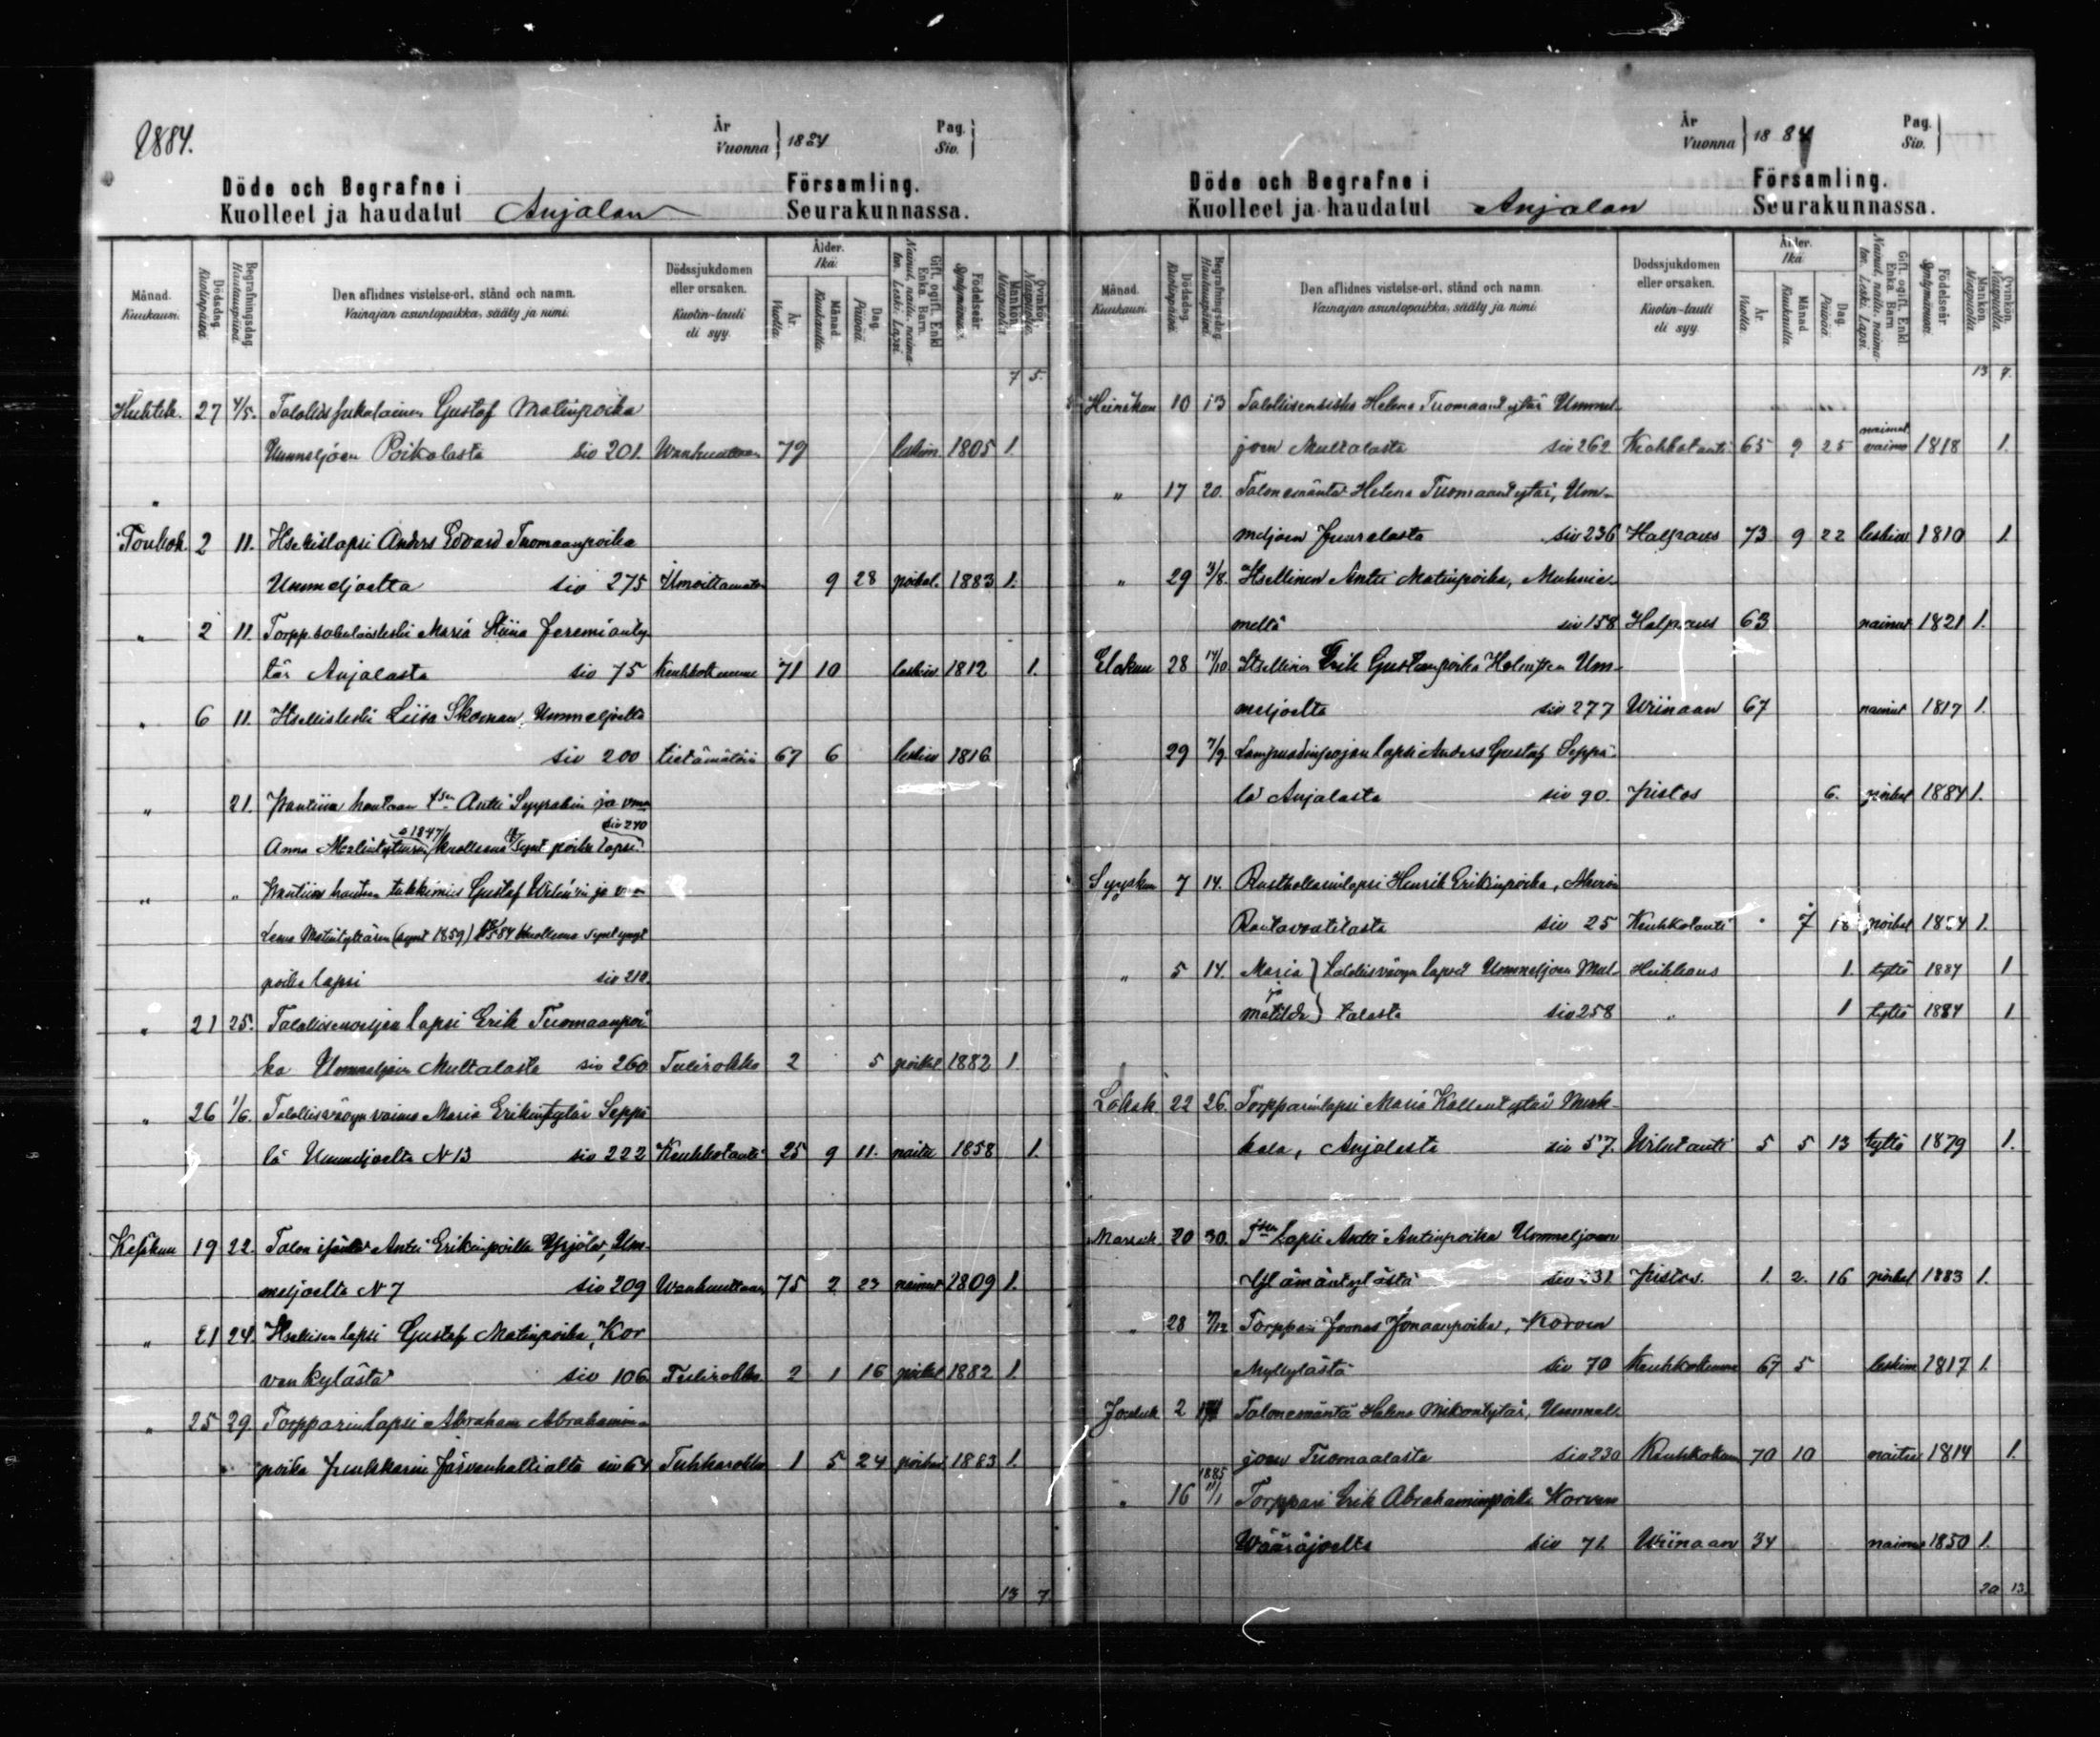 1884.
År
Vuonna } 1884
Pag.
Siv. }
Döde och Begrafne i Församling.
Kuolleet ja haudatut Anjalan Seurakunnassa.
Månad. Kuukausi. Dödsdag. Kuolinpäivä. Begrafningsdag. Hautauspäivä. Den aflidnes vistelse-ort, stånd och namn. Vainajan asuntopaikka, sääty ja nimi. Dödssjukdomen eller orsaken. Kuolin-tauti eli syy. Ålder. Ikä. År. Vuotta. Månad. Kuukautta. Dag. Päivää. Gift, ogift, Enkl. Enka. Barn. Nainut, naitu, naimaton. Leski. Lapsi. Födelseår. Syntymävuosi. Mankön. Miespuolia. Qvinkön. Naispuolia.
7 5.
Huhtik. 27 4/5. Talollis Gustaf Matinpoika
Ummeljoen Poikolasta siv 201. Wanhuuteen 79 leskim. 1805 1.
Toukok. 2 11. Itsellislapsi Anders Edvard Tuomaanpoika
Ummeljoelta siv 275 Ilmoittamaton 9 28 poikal. 1883 1.
" 2 11. Torpp. Maria Stiina Jeremianty-
tär Anjalasta siv 75 Keuhkokuume 71 10 leskiv. 1812 1.
" 6 11. Itsellisleski Liisa Skoman, Ummeljoelta
siv 200 tietämätöin 67 6 leskiv 1816
" 21. Pantiin hautaan Antti Sippolain ja vmo
siv 240
Anna Matintyttären s 1847 kuolleena synt poika lapsi.
" " Pantiin hautaan tukkimies Gustaf ja vmon
Leena Matintyttären (synt 1859) kuolleena syntynyt
poika lapsi siv 210.
" 21 25. Talollisen lapsi Erik Tuomaanpoi-
ka Ummeljoen Multalasta siv 260 Tulirokko 2 5 poikal 1882 1.
" 26 1/6. Talollisvävyn vaimo Maria Erikintytär Seppä-
lä Ummeljoelta N 13 siv 222 Keuhkotauti 25 9 11. naitu 1858 1.
Kesäkuu 19 22. Talon isäntä Antti Erikinpoika Yrjölä, Um-
meljoelta N 7 siv 209 Wanhuuteen 75 2 23 nainut 1809 1.
" 21 24. Itsellisen lapsi Gustaf Matinpoika, Kor
van kylästä siv 106. Tulirokko. 2 1 16 poikal 1882 1.
" 25 29. Torpparinlapsi Abraham Abrahamin-
poika Järvenhaltialta siv 64 Tuhkarokko 1 5 24 poikal 1883 1.
13 7
År
Vuonna } 1884
Pag.
Siv. }
Döde och Begrafne i Församling.
Kuolleet ja haudatut Anjalan Seurakunnassa.
Månad. Kuukausi. Dödsdag. Kuolinpäivä. Begrafningsdag. Hautauspäivä. Den aflidnes vistelse-ort, stånd och namn. Vainajan asuntopaikka, sääty ja nimi. Dödssjukdomen eller orsaken. Kuolin-tauti eli syy. Ålder. Ikä. År. Vuotta. Månad. Kuukautta. Dag. Päivää. Gift, ogift, Enkl. Enka. Barn. Nainut, naitu, naimaton. Leski. Lapsi. Födelseår. Syntymävuosi. Mankön. Miespuolia. Qvinkön. Naispuolia.
13 7.
Heinäkuu 10 13 Talollisen Helena Tuomaantytär Ummel-
joen Multalasta siv 262 Keuhkotauti 65 9 25 vaimo 1818 1.
" 17 20. Talonemäntä Helena Tuomaantytär, Um-
meljoen Junralasta siv 236 Halpaus 73 9 22 leskiv 1810 1.
" 29 3/8. Itsellinen Antti Matinpoika, Muhnie-
meltä siv 158 Halpaus 63 nainut 1821 1.
Elokuu 28 Itsellinen Erik Gustavpoika Um-
meljoelta siv 277 Wiinaan 67 nainut 1817 1.
29 7/9 Lampuodinpojan lapsi Anders Gustaf Seppä-
lä Anjalasta siv 90. Pistos 6. poikal 1884 1.
Syyskuu 7 14. Rusthollarinlapsi Henrik Erikinpoika,
siv 25 Keuhkotauti 7 18 poikal 1884 1.
" 5 14. Maria } talollisvävyn lapset Ummeljoen Mul- Heikkous 1. tyttö 1884 1
ja
Matilda } talasta siv 258 " 1 tyttö 1884 1
Lokak. 22 26. Torpparinlapsi Maria Kallentytär Muk-
kala, Anjalasta siv 57. Wilutauti 5 5 13 tyttö 1879 1.
Marrask. 20 30. Lapsi Antti Antinpoika Ummeljoen
Ylämäntylästä siv 231 Pistos. 1. 2. 16 poikal 1883 1.
" 28 7/12 Torppari Joonas Jonaanpoika, Korven
Myllylästä siv 70 Keuhkokuume 67 5 leskim 1817 1.
Jouluk 2 Talonemäntä Helena Mikontytär, Ummel-
joen Tuomaalasta siv 230 Keuhkokuum 70 10 naitu 1814 1.
1885
" 16 11/1 Torppari Erik Abrahaminpoika Korven
Wääräjoelta siv 71. Wiinaan 34 nainut 1850 1.
20 13.